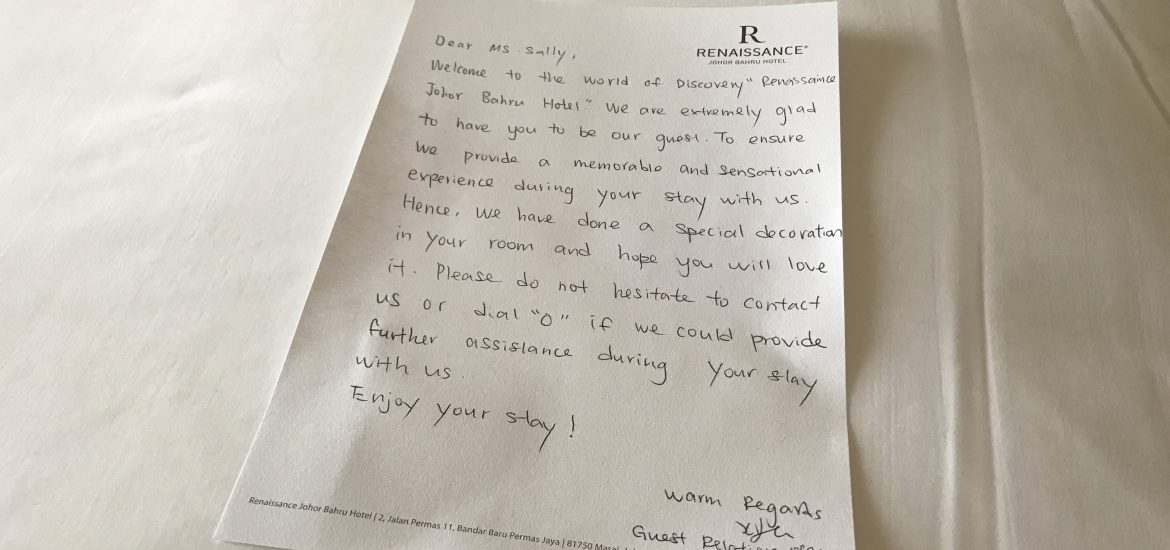 R
RENAISSANCE®
JOHOR BAHRU HOTEL
Dear Ms. Sally,
Welcome to the world of Discovery "Renassance
Johor Bahru Hotel." We are extremely glad
to have you to be our guest. To ensure
we provide a memorable and sensational
experience during your stay with us.
Hence, we have done a special decoration
in your room and hope you will love
it. Please do not hesitate to contact
us or dial "0" if we could provide
further assistance during your stay
with us.
Enjoy your stay!
Warm Regards
Guest
Renaissance Johor Bahru Hotel | 2, Jalan Permas 11, Bandar Baru Permas Jaya | 81750